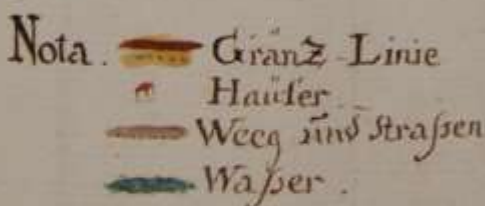 Nota. Gränz-Linie
Haüser
Weeg und Straſsen
Waſser.